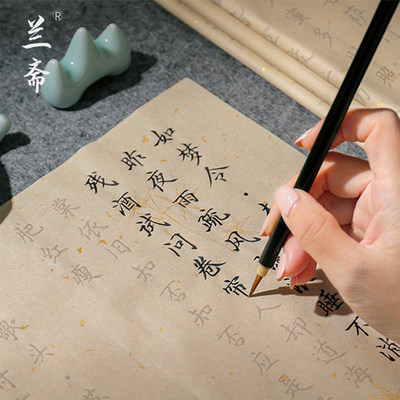 兰斋®
如梦令
昨夜雨疏风睡不消
残酒试问卷帘人却道海
棠依旧知否知否应是
肥红瘦
头